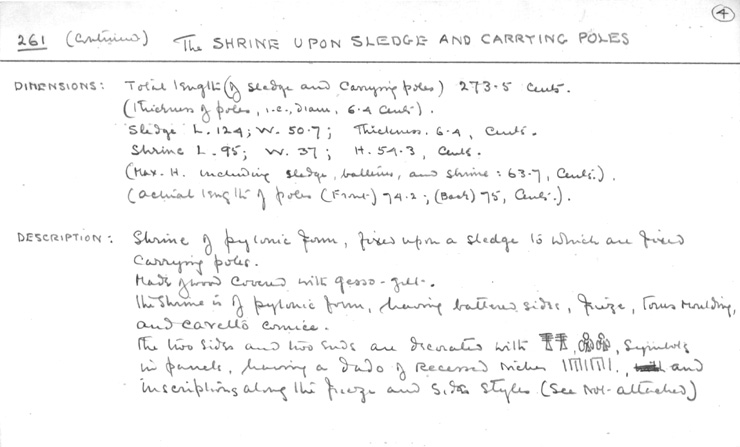 4
261 (Continued) The SHRINE UPON SLEDGE AND CARRYING POLES
DIMENSIONS: Total length (of sledge and Carrying poles) 273.5 Cents.
(Thickness of poles, i.e., diam, 6.4 Cents).
Sledge L. 124; W. 50.7; Thickness. 6.4, Cents.
Shrine L. 95; W. 37; H. 54.3, Cents.
(Max. H. including sledge, battens, and shrine: 63.7, Cents.).
(actual length of poles (Front) 74.2; (Back) 75, Cents.).
DESCRIPTION: Shrine of pylonic form, fixed upon a sledge to which are fixed
Carrying poles.
Made of wood covered with gesso-gilt.
The Shrine is of pylonic form, having battered sides, frieze, Torus Moulding,
and cavetto cornice.
The two sides and two ends are decorated with symbols
in panels, having a dado of recessed niches, and
inscriptions along the frieze and sides styles (See Not- attached)